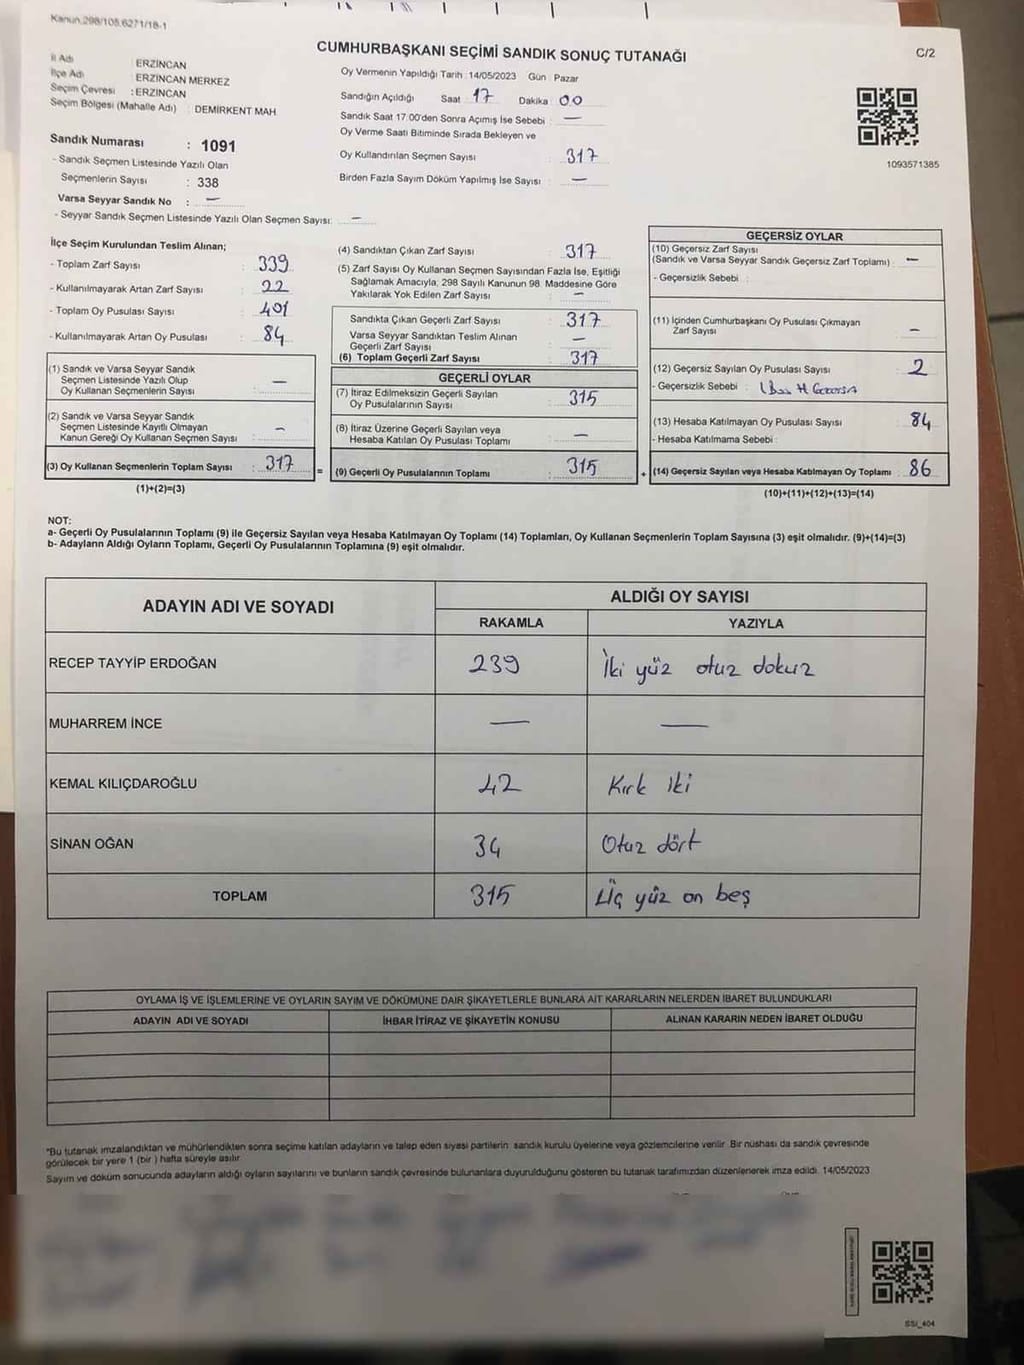 Kanun.298/105.6271/18-1
CUMHURBAŞKANI SEÇİMİ SANDIK SONUÇ TUTANAĞI
C/2
İl Adı : ERZİNCAN
İlçe Adı : ERZİNCAN MERKEZ
Seçim Çevresi : ERZİNCAN
Seçim Bölgesi (Mahalle Adı) : DEMİRKENT MAH
Oy Vermenin Yapıldığı Tarih : 14/05/2023 Gün : Pazar
Sandığın Açıldığı Saat 17 Dakika 00
Sandık Saat 17.00'den Sonra Açımış İse Sebebi : —
Oy Verme Saati Bitiminde Sırada Bekleyen ve
Oy Kullandırılan Seçmen Sayısı : 317
Birden Fazla Sayım Döküm Yapılmış İse Sayısı : —
1093571385
Sandık Numarası : 1091
- Sandık Seçmen Listesinde Yazılı Olan
Seçmenlerin Sayısı : 338
Varsa Seyyar Sandık No : —
- Seyyar Sandık Seçmen Listesinde Yazılı Olan Seçmen Sayısı: —
İlçe Seçim Kurulundan Teslim Alınan;
- Toplam Zarf Sayısı : 339
- Kullanılmayarak Artan Zarf Sayısı : 22
- Toplam Oy Pusulası Sayısı : 401
- Kullanılmayarak Artan Oy Pusulası : 84
(1) Sandık ve Varsa Seyyar Sandık
Seçmen Listesinde Yazılı Olup
Oy Kullanan Seçmenlerin Sayısı : —
(2) Sandık ve Varsa Seyyar Sandık
Seçmen Listesinde Kayıtlı Olmayan
Kanun Gereği Oy Kullanan Seçmen Sayısı : —
(3) Oy Kullanan Seçmenlerin Toplam Sayısı : 317
(1)+(2)=(3)
(4) Sandıktan Çıkan Zarf Sayısı : 317
(5) Zarf Sayısı Oy Kullanan Seçmen Sayısından Fazla İse, Eşitliği
Sağlamak Amacıyla, 298 Sayılı Kanunun 98. Maddesine Göre
Yakılarak Yok Edilen Zarf Sayısı : —
Sandıkta Çıkan Geçerli Zarf Sayısı : 317
Varsa Seyyar Sandıktan Teslim Alınan
Geçerli Zarf Sayısı : —
(6) Toplam Geçerli Zarf Sayısı : 317
GEÇERLİ OYLAR
(7) İtiraz Edilmeksizin Geçerli Sayılan
Oy Pusulalarının Sayısı : 315
(8) İtiraz Üzerine Geçerli Sayılan veya
Hesaba Katılan Oy Pusulası Toplamı : —
= (9) Geçerli Oy Pusulalarının Toplamı : 315
GEÇERSİZ OYLAR
(10) Geçersiz Zarf Sayısı
(Sandık ve Varsa Seyyar Sandık Geçersiz Zarf Toplamı) : —
- Geçersizlik Sebebi :
(11) İçinden Cumhurbaşkanı Oy Pusulası Çıkmayan
Zarf Sayısı : —
(12) Geçersiz Sayılan Oy Pusulası Sayısı : 2
- Geçersizlik Sebebi :
(13) Hesaba Katılmayan Oy Pusulası Sayısı : 84
- Hesaba Katılmama Sebebi :
+ (14) Geçersiz Sayılan veya Hesaba Katılmayan Oy Toplamı : 86
(10)+(11)+(12)+(13)=(14)
NOT:
a- Geçerli Oy Pusulalarının Toplamı (9) ile Geçersiz Sayılan veya Hesaba Katılmayan Oy Toplamı (14) Toplamları, Oy Kullanan Seçmenlerin Toplam Sayısına (3) eşit olmalıdır. (9)+(14)=(3)
b- Adayların Aldığı Oyların Toplamı, Geçerli Oy Pusulalarının Toplamına (9) eşit olmalıdır.
ADAYIN ADI VE SOYADI
ALDIĞI OY SAYISI
RAKAMLA YAZIYLA
RECEP TAYYİP ERDOĞAN 239 İki yüz otuz dokuz
MUHARREM İNCE — —
KEMAL KILIÇDAROĞLU 42 Kırk iki
SİNAN OĞAN 34 Otuz dört
TOPLAM 315 Üç yüz on beş
OYLAMA İŞ VE İŞLEMLERİNE VE OYLARIN SAYIM VE DÖKÜMÜNE DAİR ŞİKAYETLERLE BUNLARA AİT KARARLARIN NELERDEN İBARET BULUNDUKLARI
ADAYIN ADI VE SOYADI İHBAR İTİRAZ VE ŞİKAYETİN KONUSU ALINAN KARARIN NEDEN İBARET OLDUĞU
*Bu tutanak imzalandıktan ve mühürlendikten sonra seçime katılan adayların ve talep eden siyasi partilerin sandık kurulu üyelerine veya gözlemcilerine verilir. Bir nüshası da sandık çevresinde
görülecek bir yere 1 (bir ) hafta süreyle asılır.
Sayım ve döküm sonucunda adayların aldığı oyların sayılarını ve bunların sandık çevresinde bulunanlara duyurulduğunu gösteren bu tutanak tarafımızdan düzenlenerek imza edildi. 14/05/2023
SSI_404